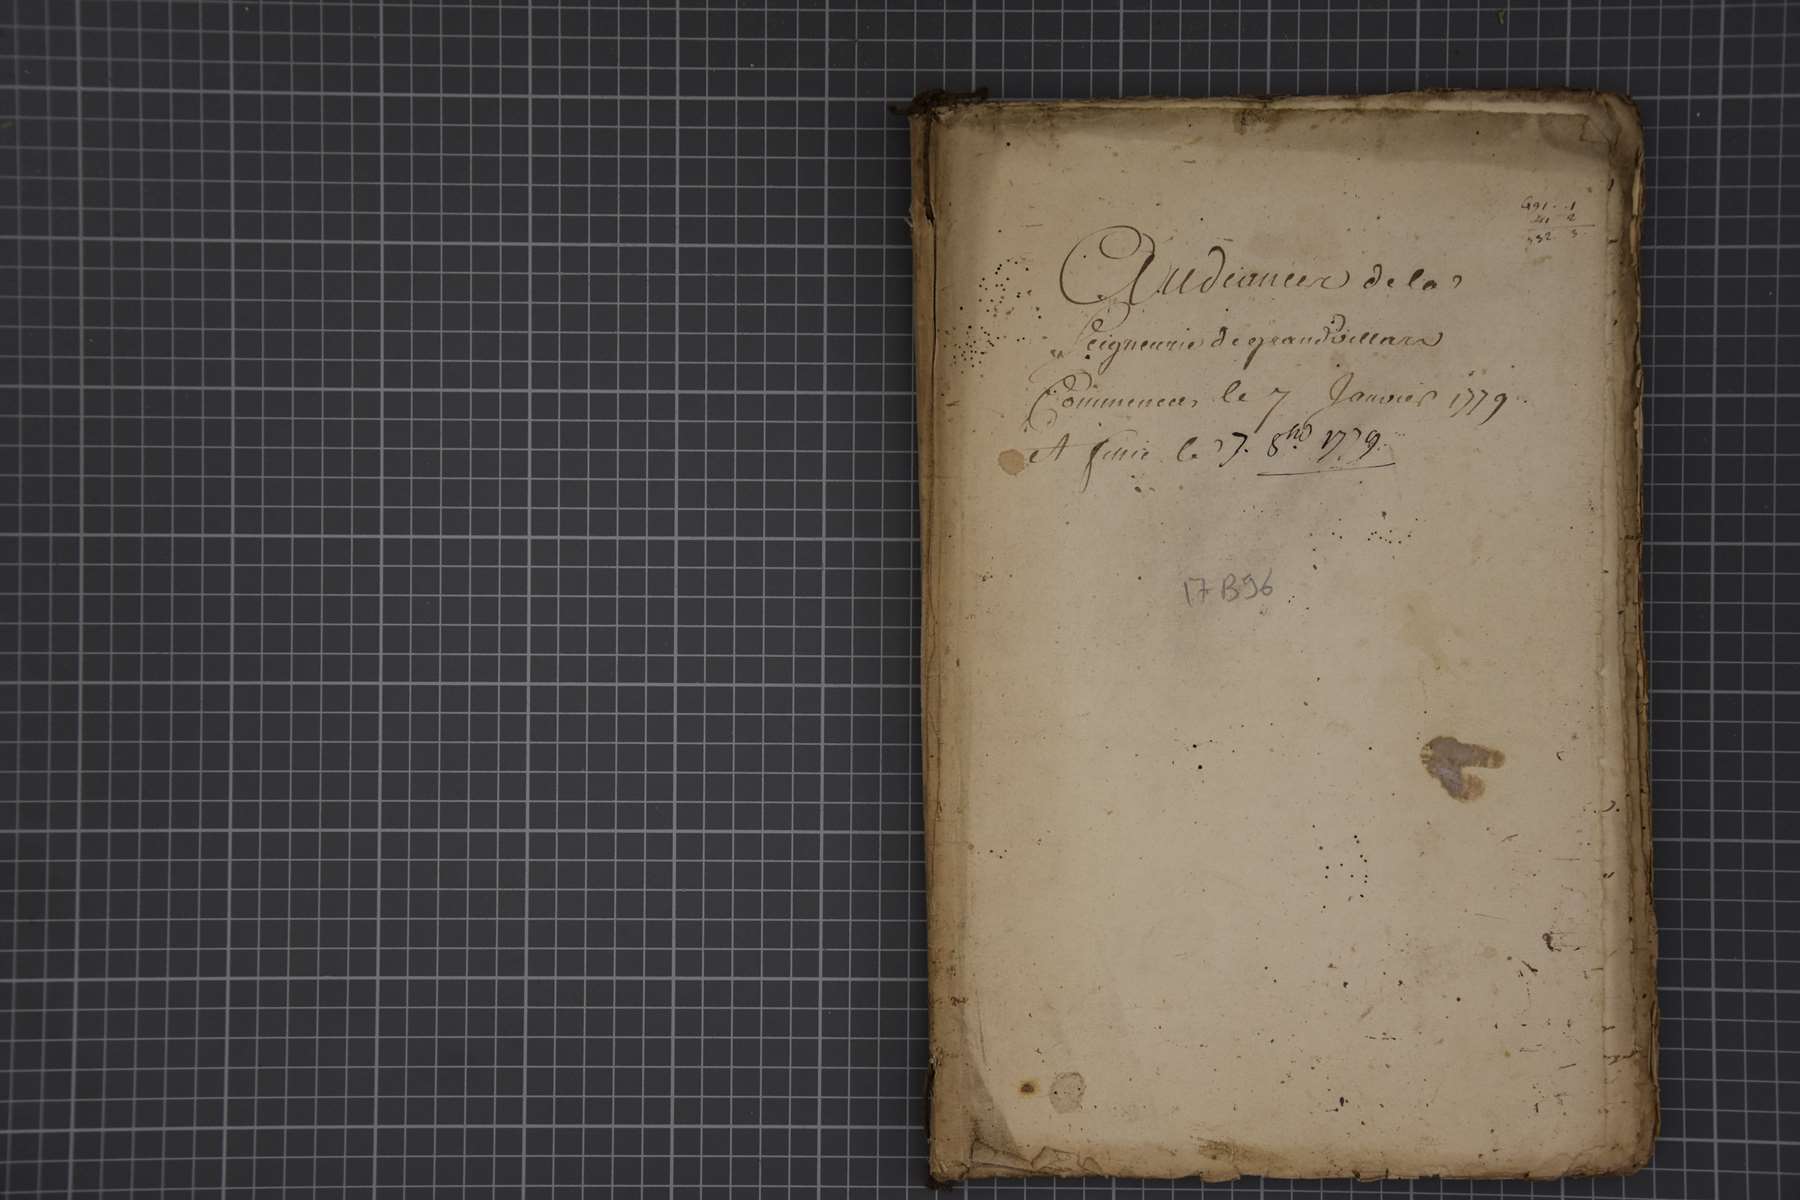 491 . 1
41 2
532 3
Audiances de la
Seigneurie de grandvillars
Commencée le 7 Janvier 1779
et finie le 27. 8bre 1779.
17 B96